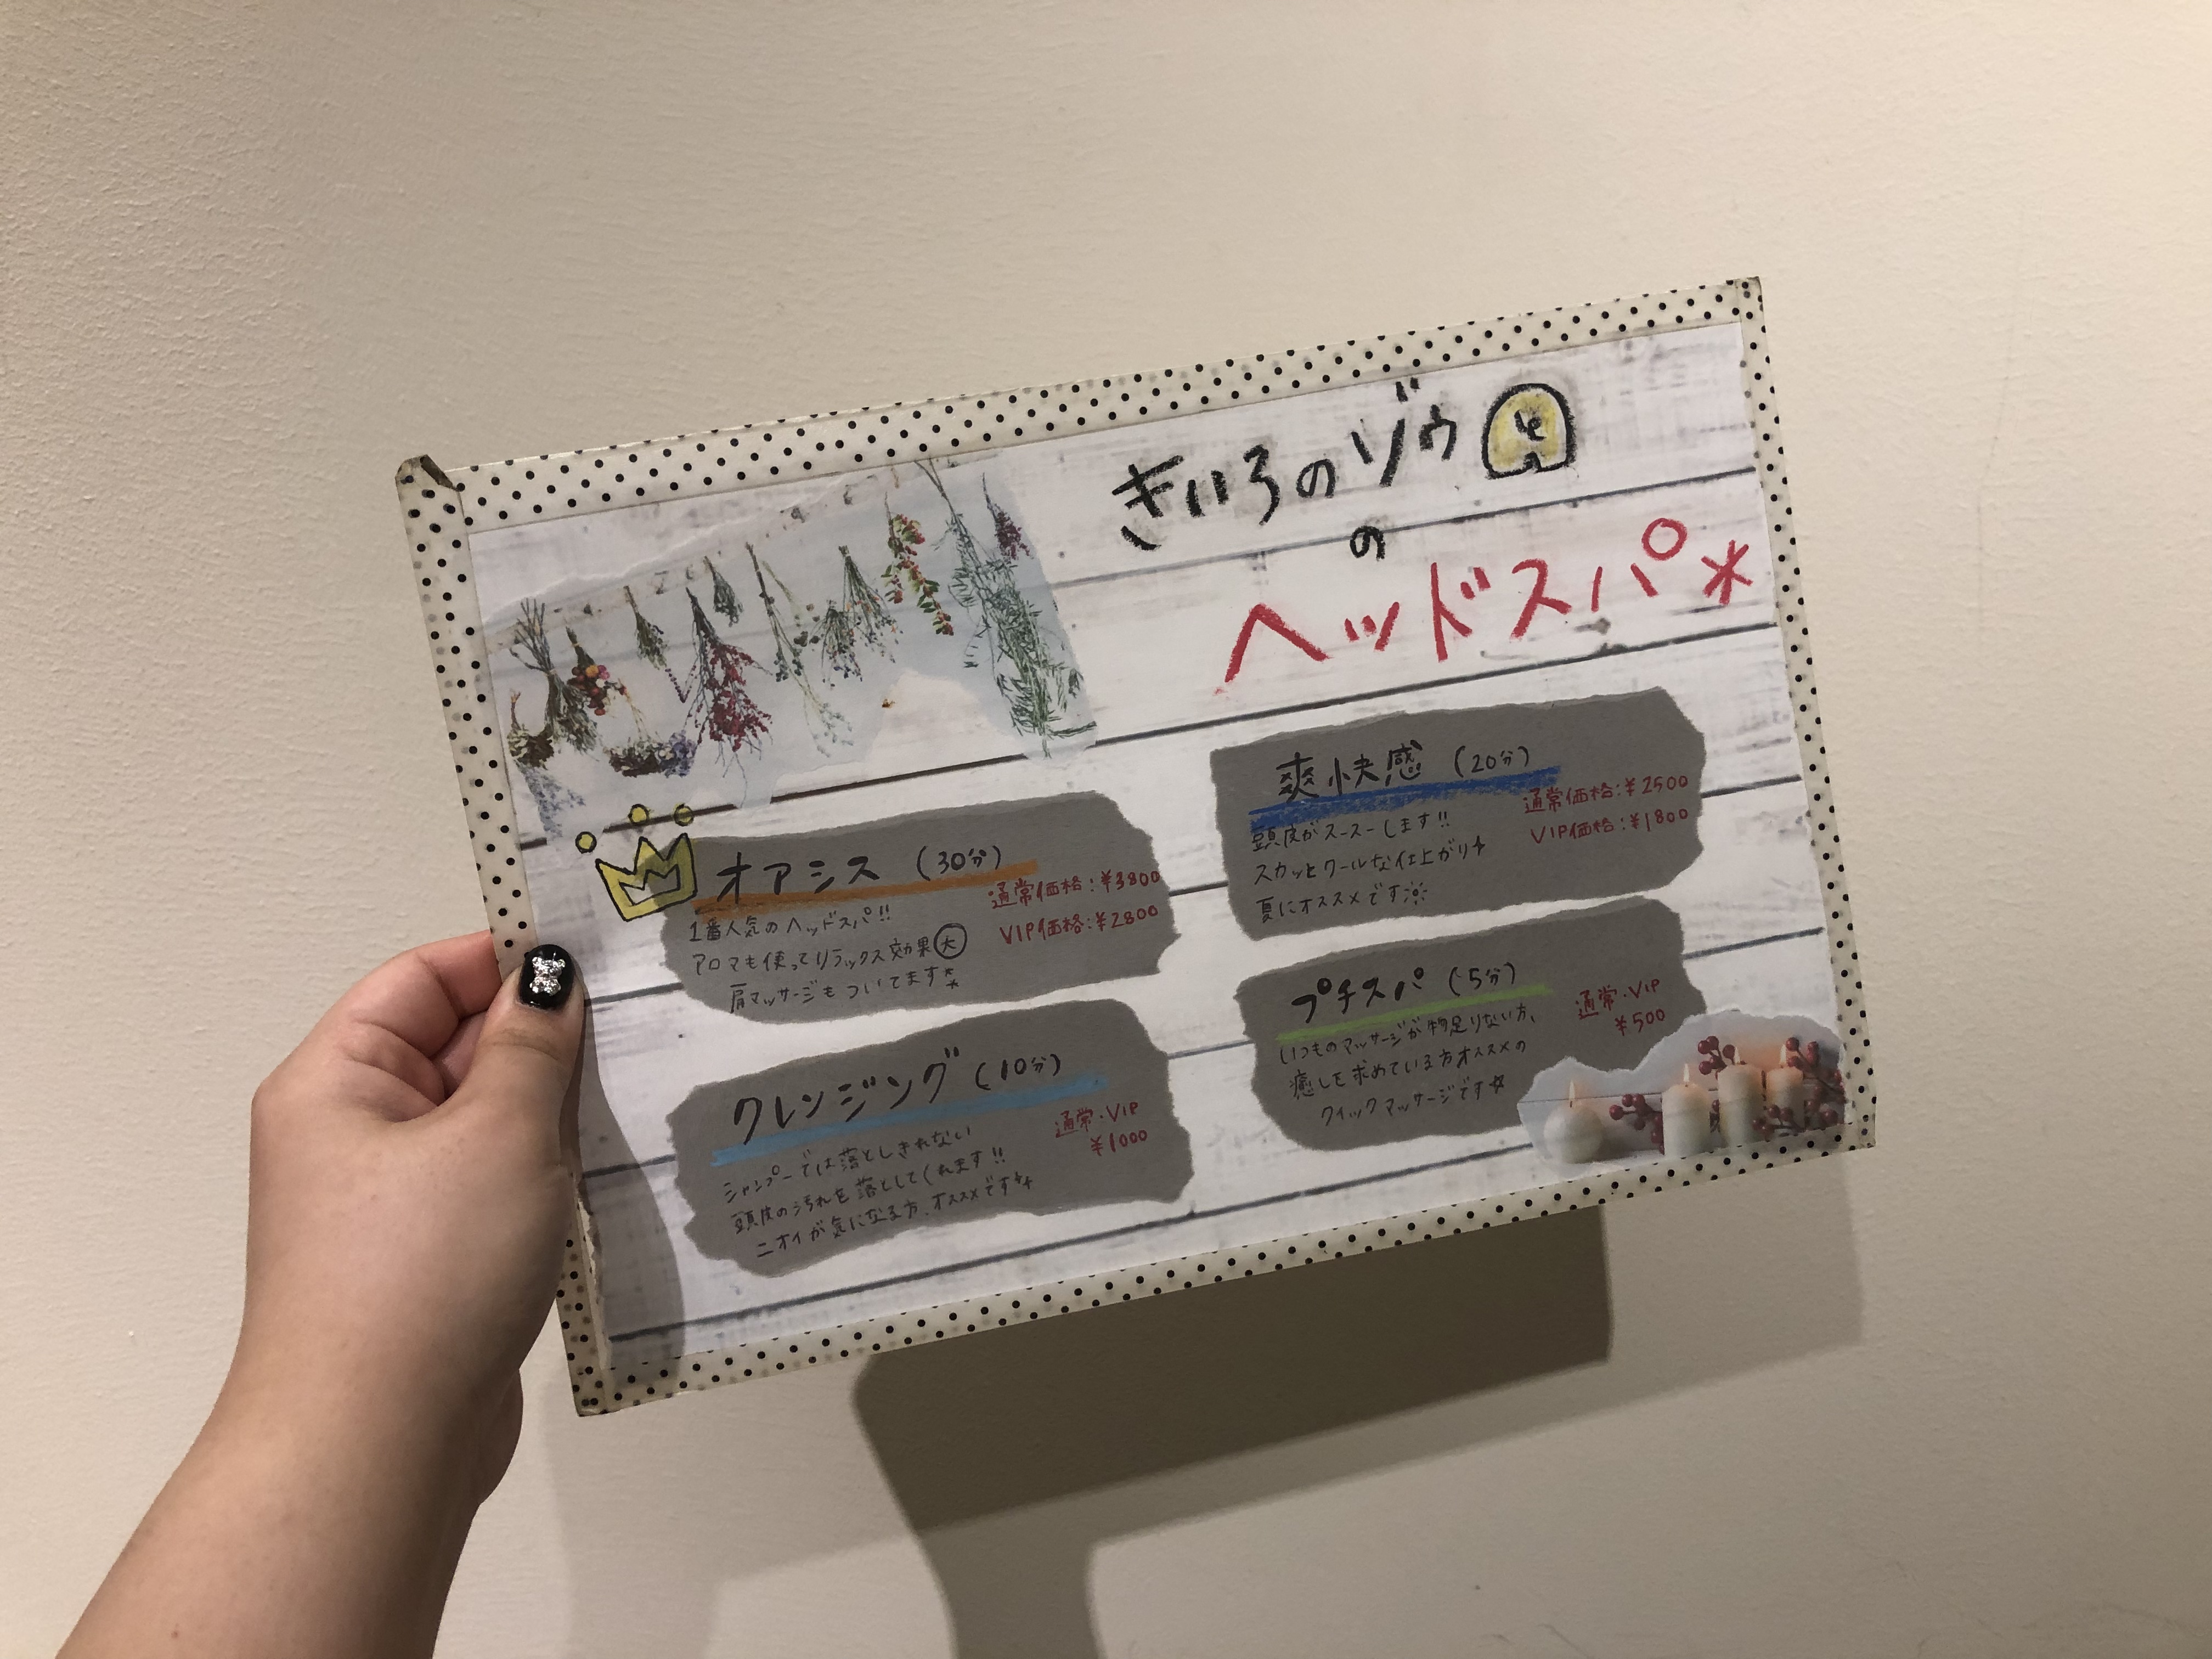 きいろのゾウ
の
ヘッドスパ*
オアシス (30分)
通常価格:¥3800
VIP価格:¥2800
1番人気のヘッドスパ!!
アロマも使ってリラックス効果大
肩マッサージもついてます*
クレンジング (10分)
通常・VIP
¥1000
シャンプーでは落としきれない
頭皮の汚れを落としてくれます!!
ニオイが気になる方、オススメです
爽快感 (20分)
通常価格:¥2500
VIP価格:¥1800
頭皮がスースーします!!
スカッとクールな仕上がり
夏にオススメです
プチスパ (5分)
通常・VIP
¥500
いつものマッサージが物足りない方、
癒しを求めている方オススメの
クイックマッサージです☆